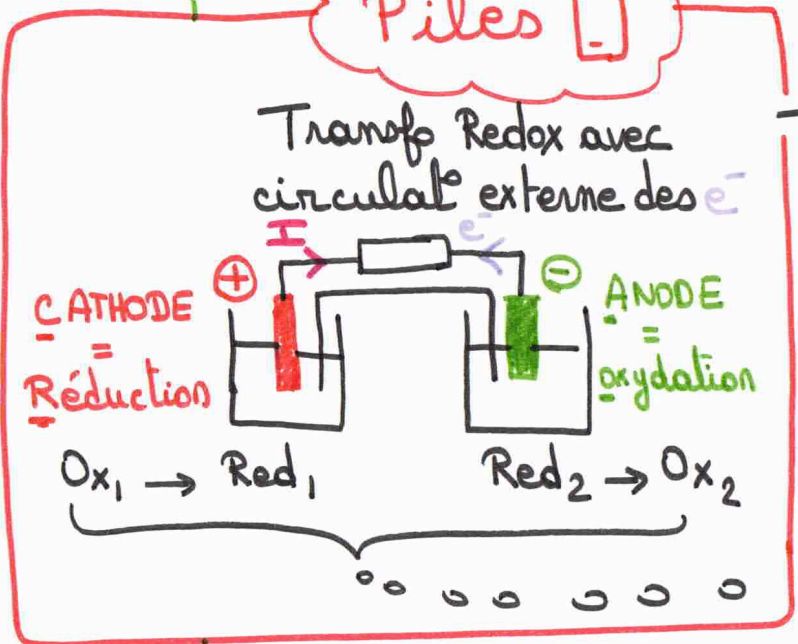 Piles
Transfo Redox avec
circulat° externe des e⁻
I e⁻
+ −
CATHODE
=
Réduction
ANODE
=
oxydation
Ox₁ → Red₁
Red₂ → Ox₂